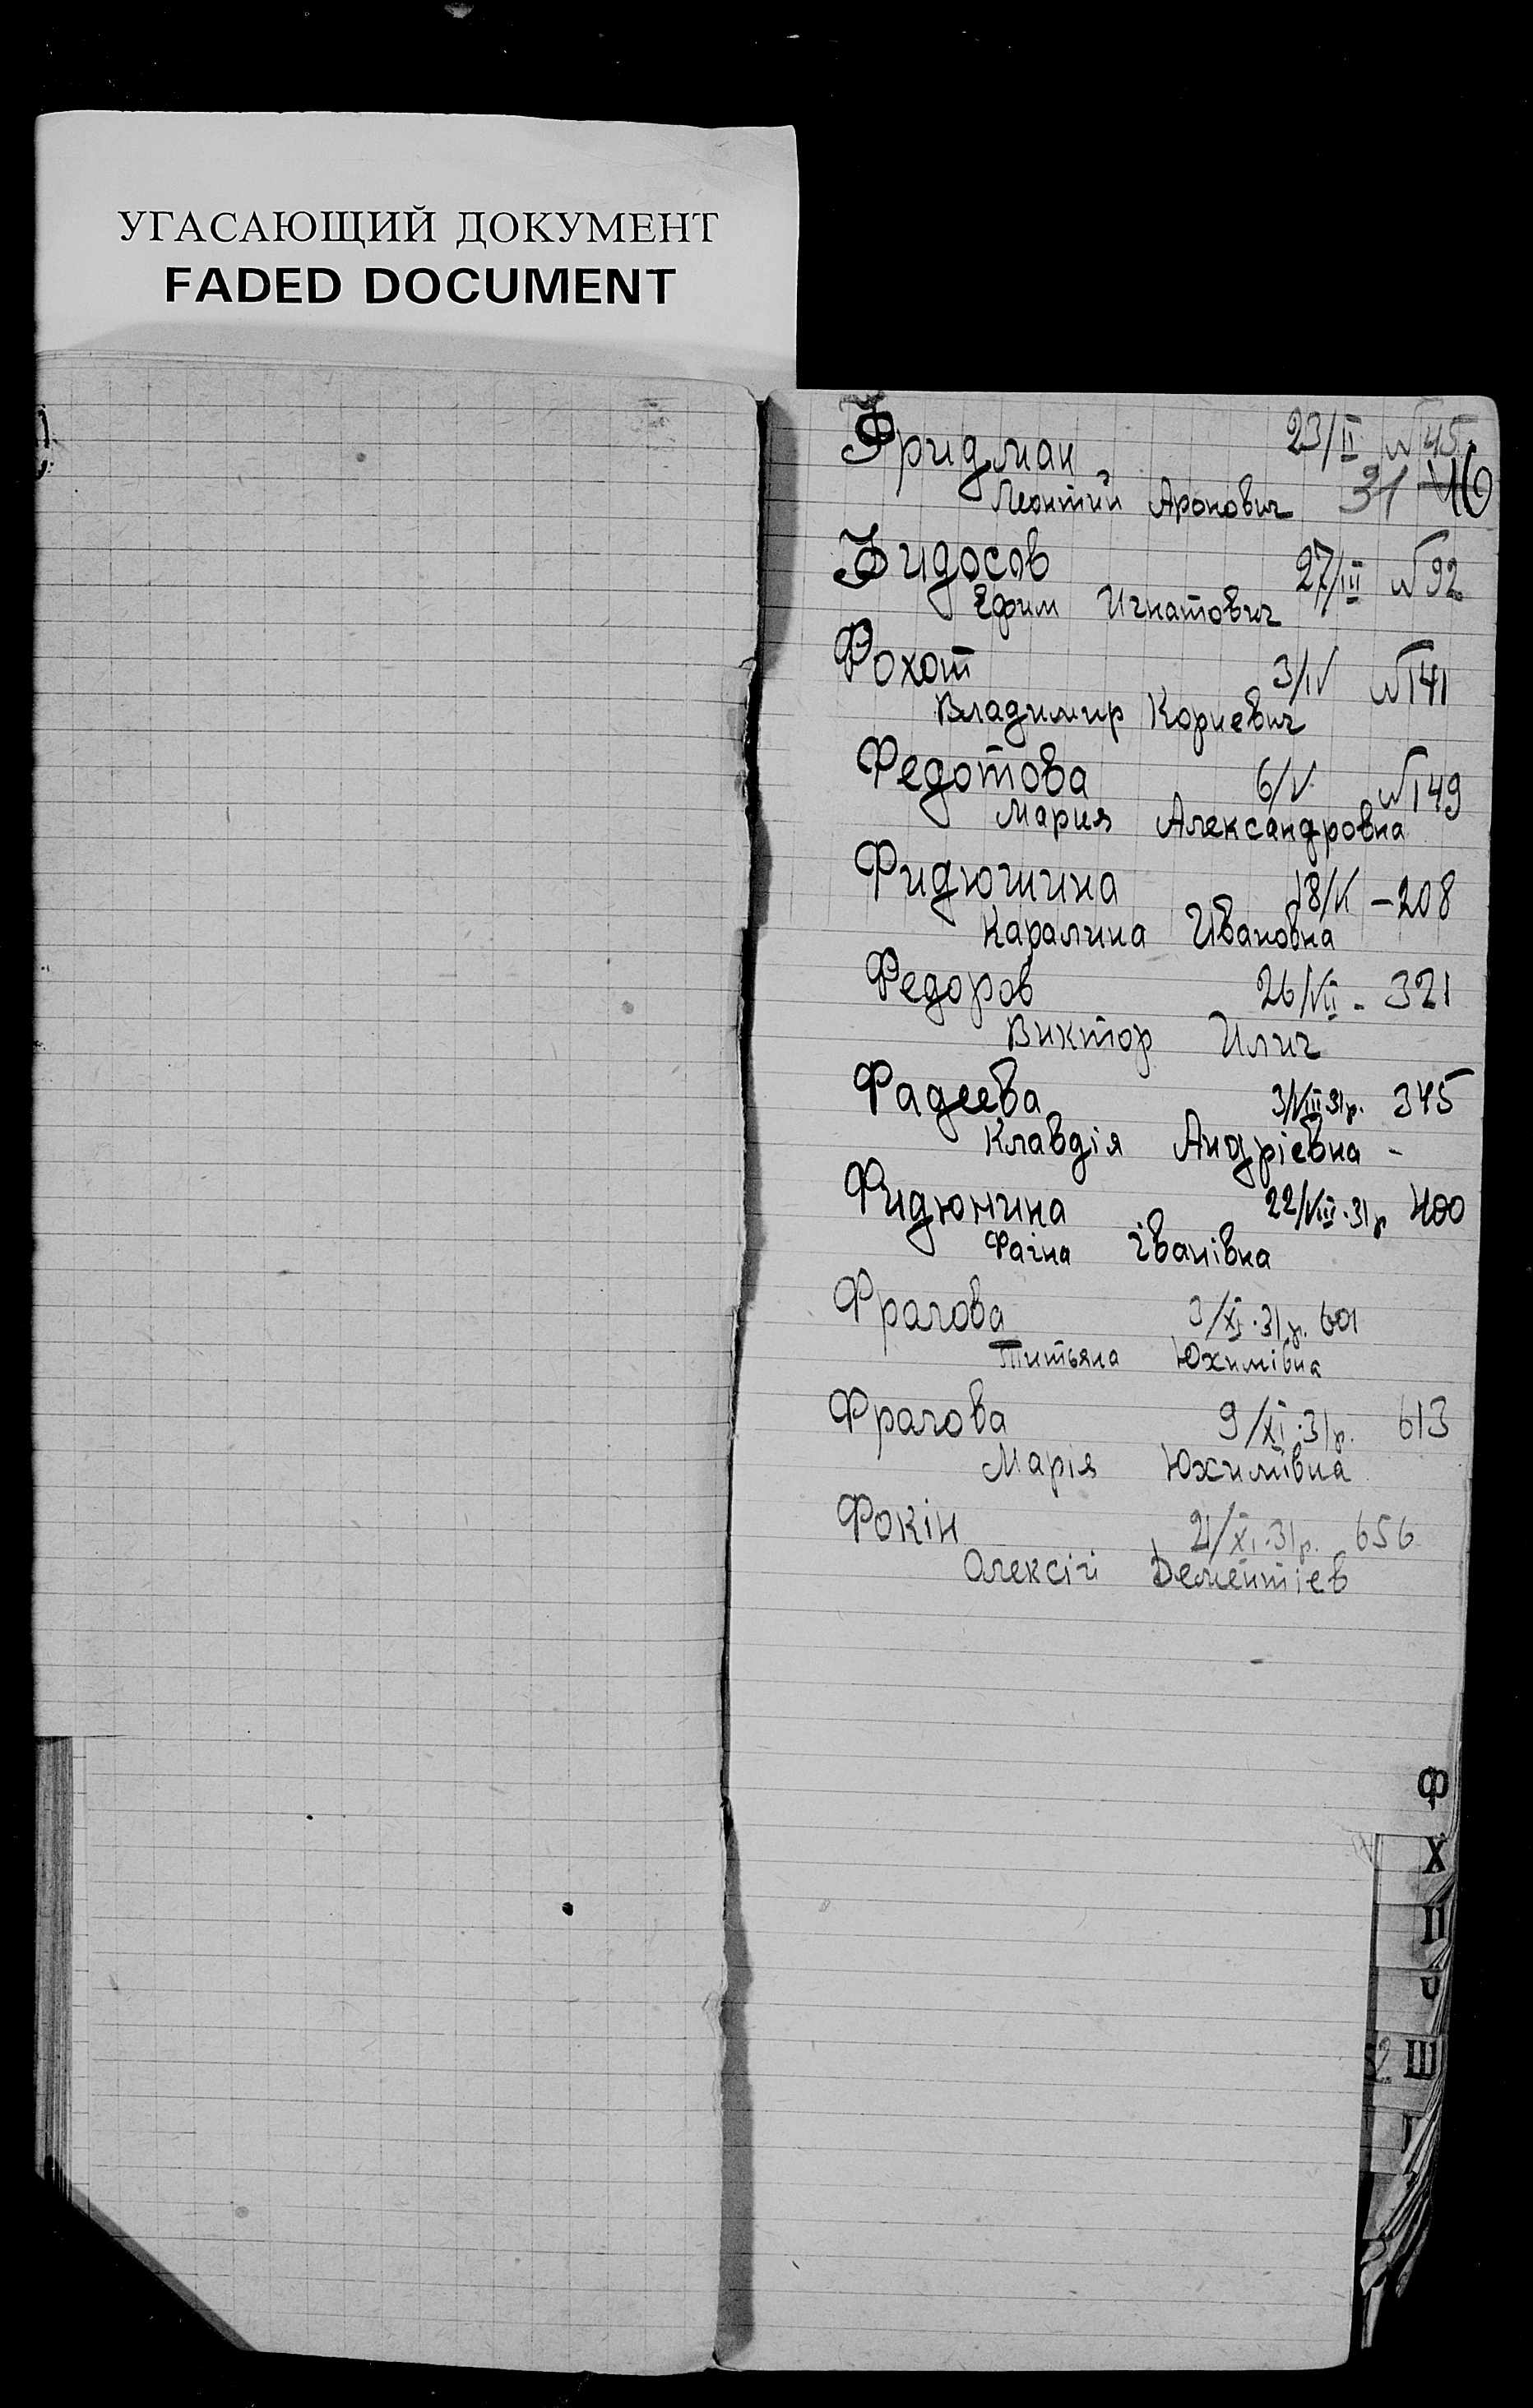 УГАСАЮЩИЙ ДОКУМЕНТ
FADED DOCUMENT
Фридман 23/II №45
Леонтий Аронович 31 46
Фидосов 27/III №92
Ефим Игнатович
Рохот 3/IV №141
Владимир Корневич
Федотова 6/V №149
Мария Александровна
Фидюшина 18/VI - 208
Каралина Ивановна
Федоров 26/VII - 321
Виктор Илич
Фадеева 3/VIII 31р. 345
Клавдія Андрієвна -
Фидюнина 22/VIII·31р 400
Фаіна Іванівна
Фрагова 3/XI·31р. 601
Титьяна Юхимівна
Фрагова 9/XI·31р. 613
Марія Юхимівна
Фокін 21/XI·31р. 656
Олексій Дементіев
Ф
Х
Ц
Ч
Ш